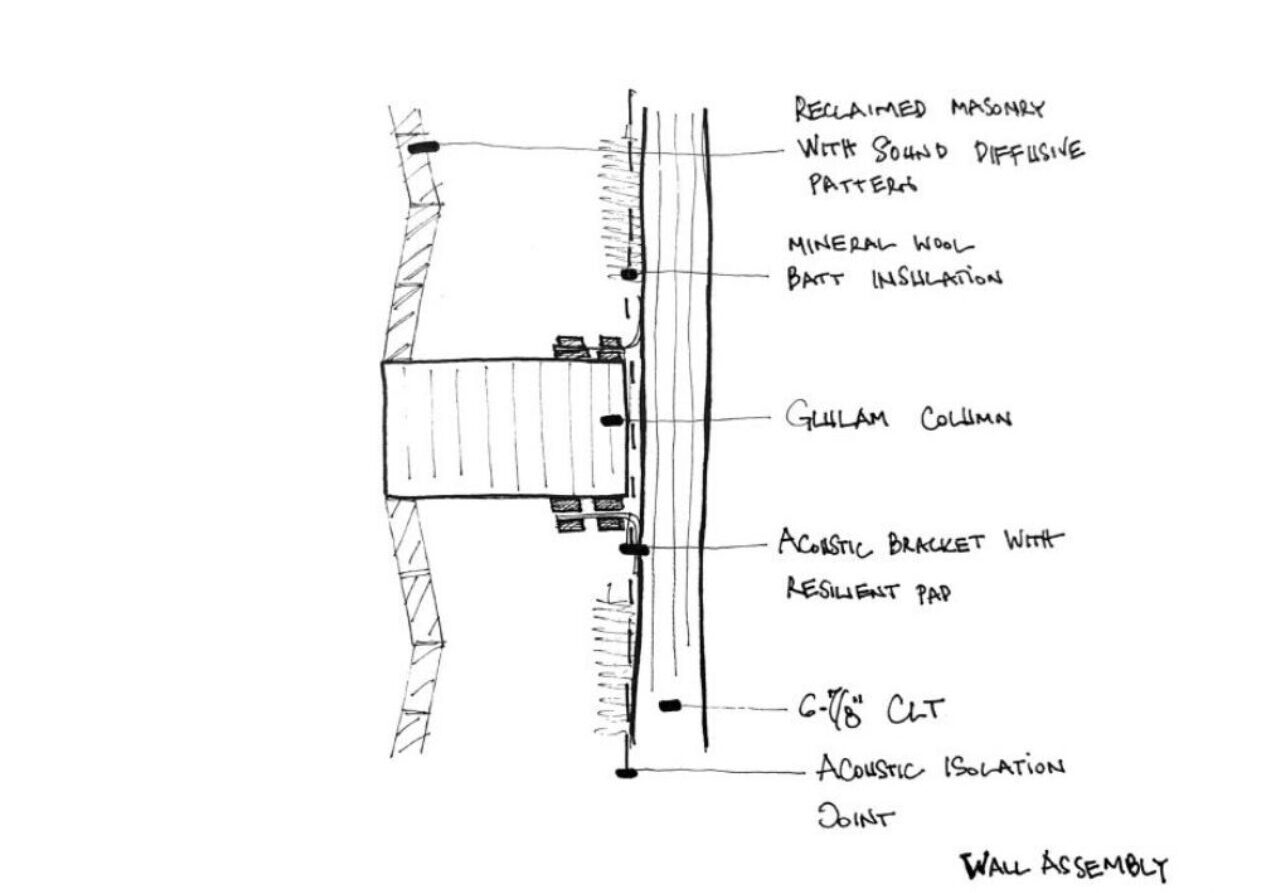 RECLAIMED MASONRY
WITH SOUND DIFFUSIVE
PATTERN
MINERAL WOOL
BATT INSULATION
GLULAM COLUMN
ACOUSTIC BRACKET WITH
RESILIENT PAD
6-7/8" CLT
ACOUSTIC ISOLATION
JOINT
WALL ASSEMBLY